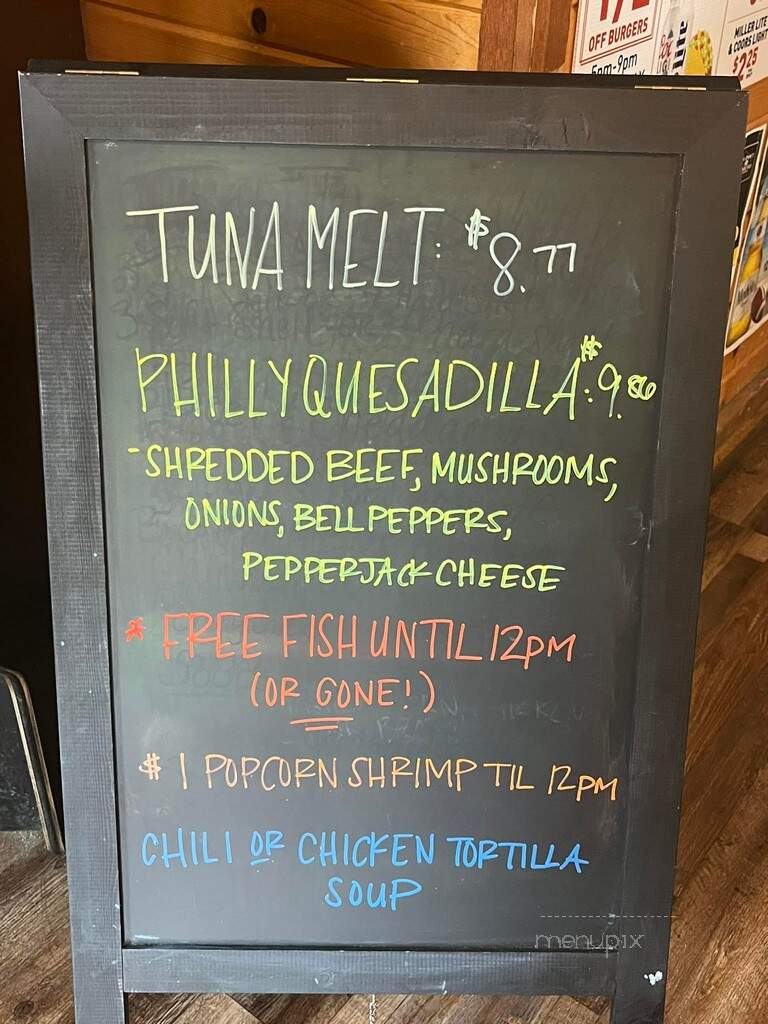 OFF BURGERS
5pm-9pm
MILLER LITE
& COORS LIGHT
$2.25
TUNA MELT: $8.77
PHILLY QUESADILLA: $9.86
-SHREDDED BEEF, MUSHROOMS,
ONIONS, BELL PEPPERS,
PEPPERJACK CHEESE
* FREE FISH UNTIL 12PM
(OR GONE!)
$1 POPCORN SHRIMP TIL 12PM
CHILI OR CHICKEN TORTILLA
SOUP
menupix